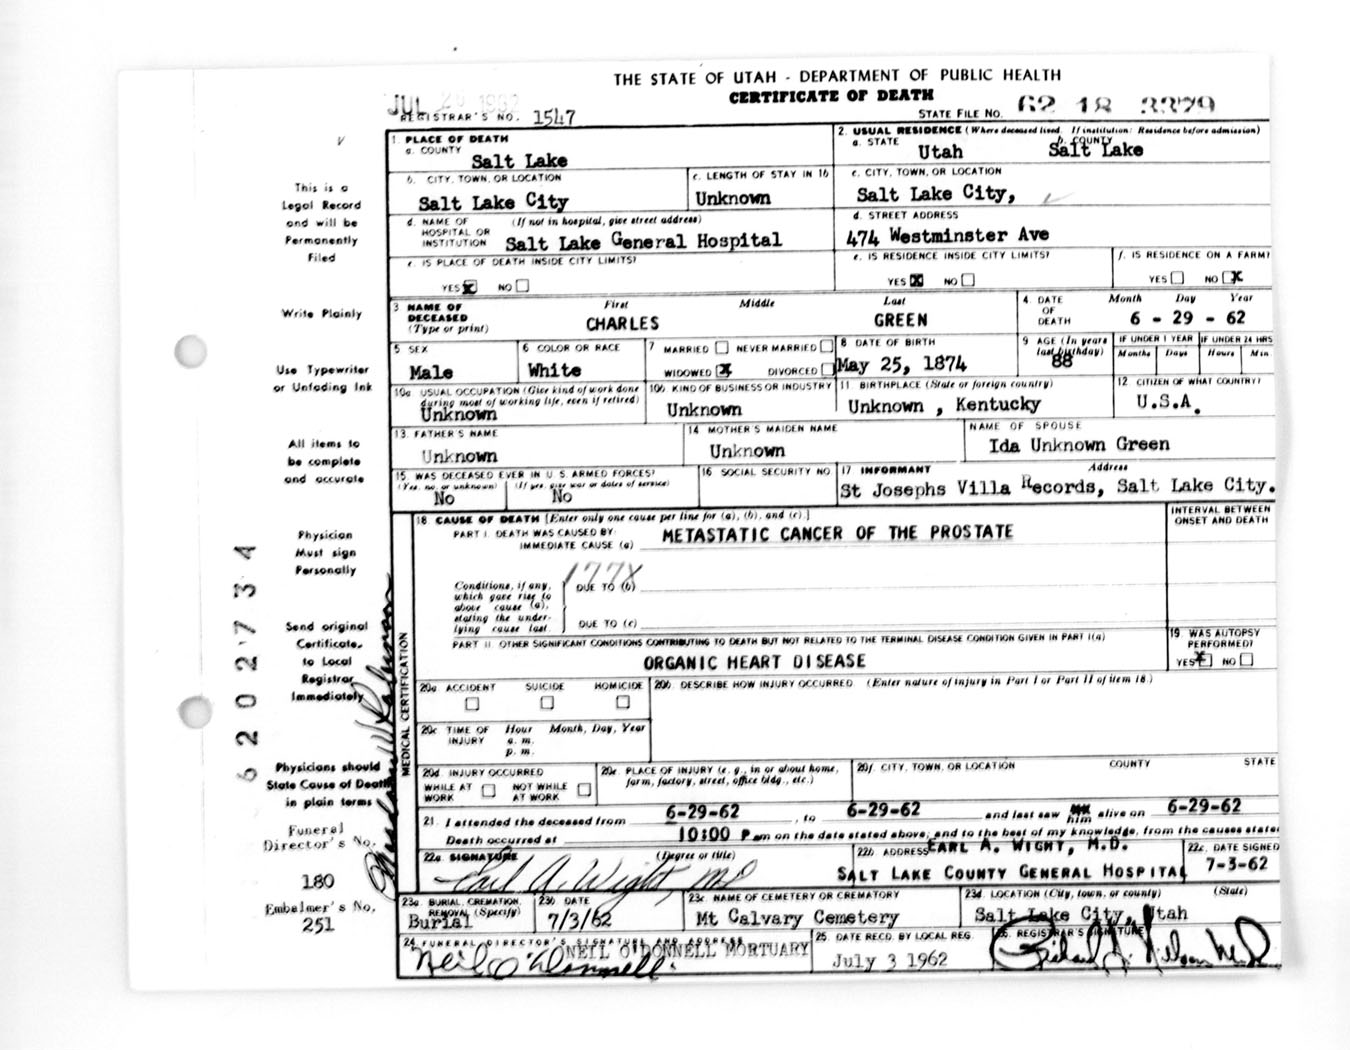 THE STATE OF UTAH - DEPARTMENT OF PUBLIC HEALTH
CERTIFICATE OF DEATH
JUL 1962
REGISTRAR'S NO. 1547
STATE FILE NO. 62 18 3379
1. PLACE OF DEATH
a. COUNTY
Salt Lake
2. USUAL RESIDENCE (Where deceased lived. If institution: Residence before admission)
a. STATE Utah b. COUNTY Salt Lake
b. CITY, TOWN, OR LOCATION
Salt Lake City
c. LENGTH OF STAY IN 1b
Unknown
c. CITY, TOWN, OR LOCATION
Salt Lake City,
d. NAME OF HOSPITAL OR INSTITUTION (If not in hospital, give street address)
Salt Lake General Hospital
d. STREET ADDRESS
474 Westminster Ave
e. IS PLACE OF DEATH INSIDE CITY LIMITS?
YES X NO
e. IS RESIDENCE INSIDE CITY LIMITS?
YES X NO
f. IS RESIDENCE ON A FARM?
YES NO X
3 NAME OF DECEASED (Type or print)
First Middle Last
CHARLES GREEN
4. DATE OF DEATH Month Day Year
6 - 29 - 62
5 SEX
Male
6 COLOR OR RACE
White
7 MARRIED NEVER MARRIED
WIDOWED X DIVORCED
8 DATE OF BIRTH
May 25, 1874
9 AGE (In years last birthday)
88
IF UNDER 1 YEAR
Months Days
IF UNDER 24 HRS
Hours Min.
10a USUAL OCCUPATION (Give kind of work done during most of working life, even if retired)
Unknown
10b. KIND OF BUSINESS OR INDUSTRY
Unknown
11 BIRTHPLACE (State or foreign country)
Unknown , Kentucky
12 CITIZEN OF WHAT COUNTRY?
U.S.A.
13. FATHER'S NAME
Unknown
14 MOTHER'S MAIDEN NAME
Unknown
NAME OF SPOUSE
Ida Unknown Green
15 WAS DECEASED EVER IN U S ARMED FORCES?
(Yes, no, or unknown) (If yes, give war or dates of service)
No No
16 SOCIAL SECURITY NO
17 INFORMANT Address
St Josephs Villa Records, Salt Lake City.
18 CAUSE OF DEATH [Enter only one cause per line for (a), (b), and (c).]
INTERVAL BETWEEN ONSET AND DEATH
PART I. DEATH WAS CAUSED BY
IMMEDIATE CAUSE (a) METASTATIC CANCER OF THE PROSTATE
177X
Conditions, if any, which gave rise to above cause (a), stating the underlying cause last.
DUE TO (b)
DUE TO (c)
PART II OTHER SIGNIFICANT CONDITIONS CONTRIBUTING TO DEATH BUT NOT RELATED TO THE TERMINAL DISEASE CONDITION GIVEN IN PART I(a)
ORGANIC HEART DISEASE
19 WAS AUTOPSY PERFORMED?
YES X NO
MEDICAL CERTIFICATION
20a ACCIDENT SUICIDE HOMICIDE
20b. DESCRIBE HOW INJURY OCCURRED (Enter nature of injury in Part I or Part II of item 18.)
20c TIME OF INJURY Hour Month, Day, Year
a. m.
p. m.
20d. INJURY OCCURRED
WHILE AT WORK NOT WHILE AT WORK
20e. PLACE OF INJURY (e. g., in or about home, farm, factory, street, office bldg., etc.)
20f. CITY, TOWN, OR LOCATION COUNTY STATE
21. I attended the deceased from 6-29-62, to 6-29-62 and last saw him alive on 6-29-62
Death occurred at 10:00 P m on the date stated above; and to the best of my knowledge, from the causes stated
22a. SIGNATURE (Degree or title)
Earl A. Wight, MD
22b ADDRESS EARL A. WIGHT, M.D.
SALT LAKE COUNTY GENERAL HOSPITAL
22c. DATE SIGNED
7-3-62
23a. BURIAL, CREMATION, REMOVAL (Specify)
Burial
23b DATE
7/3/62
23c NAME OF CEMETERY OR CREMATORY
Mt Calvary Cemetery
23d LOCATION (City, town, or county) (State)
Salt Lake City, Utah
24 FUNERAL DIRECTOR'S SIGNATURE AND ADDRESS
NEIL O'DONNELL MORTUARY
Neil O'Donnell.
25 DATE RECD. BY LOCAL REG.
July 3 1962
26. REGISTRAR'S SIGNATURE
This is a
Legal Record
and will be
Permanently
Filed
Write Plainly
Use Typewriter
or Unfading Ink
All items to
be complete
and accurate
Physician
Must sign
Personally
Send original
Certificate,
to Local
Registrar
Immediately
Physicians should
State Cause of Death
in plain terms
Funeral
Director's No.
180
Embalmer's No.
251
6202734